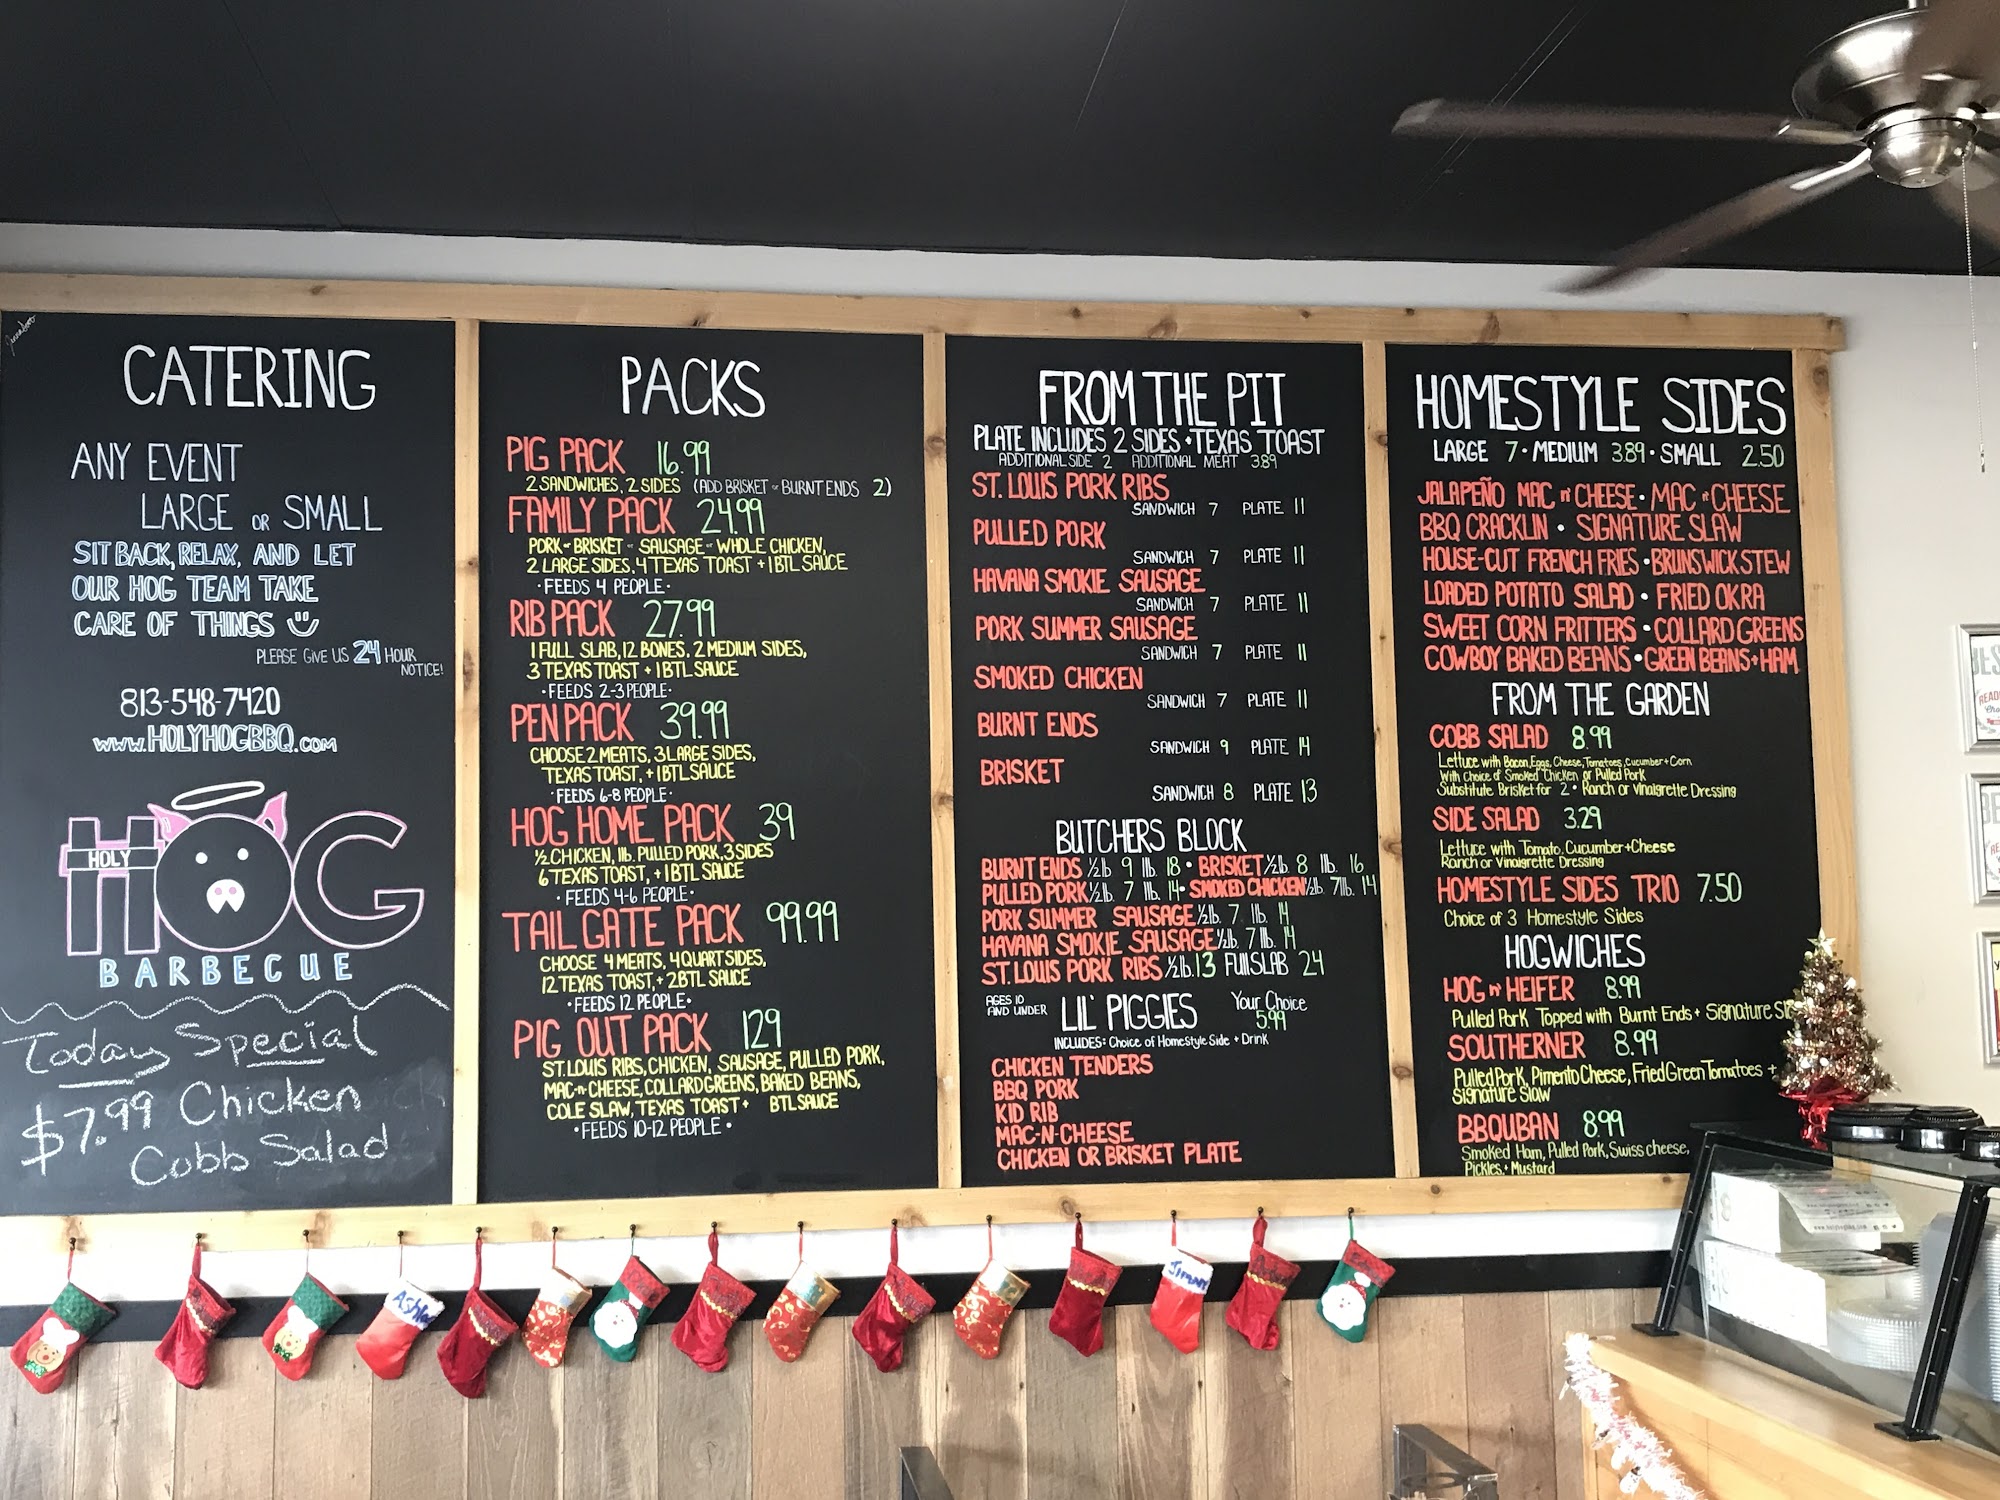 CATERING
ANY EVENT
LARGE OR SMALL
SIT BACK, RELAX, AND LET
OUR HOG TEAM TAKE
CARE OF THINGS
PLEASE GIVE US 24 HOUR
NOTICE!
813-548-7420
www.HOLYHOGBBQ.com
HOLY
HOG
BARBECUE
Today Special
$7.99 Chicken
Cobb Salad
PACKS
PIG PACK 16.99
2 SANDWICHES, 2 SIDES (ADD BRISKET or BURNT ENDS 2)
FAMILY PACK 24.99
PORK or BRISKET or SAUSAGE or WHOLE CHICKEN,
2 LARGE SIDES, 4 TEXAS TOAST + 1 BTL SAUCE
• FEEDS 4 PEOPLE •
RIB PACK 27.99
1 FULL SLAB, 12 BONES, 2 MEDIUM SIDES,
3 TEXAS TOAST + 1 BTL SAUCE
• FEEDS 2-3 PEOPLE •
PEN PACK 39.99
CHOOSE 2 MEATS, 3 LARGE SIDES,
TEXAS TOAST, + 1 BTL SAUCE
• FEEDS 6-8 PEOPLE •
HOG HOME PACK 39
½ CHICKEN, 1 lb. PULLED PORK, 3 SIDES
6 TEXAS TOAST, + 1 BTL SAUCE
• FEEDS 4-6 PEOPLE •
TAIL GATE PACK 99.99
CHOOSE 4 MEATS, 4 QUART SIDES,
12 TEXAS TOAST, + 2 BTL SAUCE
• FEEDS 12 PEOPLE •
PIG OUT PACK 129
ST. LOUIS RIBS, CHICKEN, SAUSAGE, PULLED PORK,
MAC-n-CHEESE, COLLARD GREENS, BAKED BEANS,
COLE SLAW, TEXAS TOAST + BTL SAUCE
• FEEDS 10-12 PEOPLE •
FROM THE PIT
PLATE INCLUDES 2 SIDES • TEXAS TOAST
ADDITIONAL SIDE 2 ADDITIONAL MEAT 3.89
ST. LOUIS PORK RIBS
SANDWICH 7 PLATE 11
PULLED PORK
SANDWICH 7 PLATE 11
HAVANA SMOKIE SAUSAGE
SANDWICH 7 PLATE 11
PORK SUMMER SAUSAGE
SANDWICH 7 PLATE 11
SMOKED CHICKEN
SANDWICH 7 PLATE 11
BURNT ENDS
SANDWICH 9 PLATE 14
BRISKET
SANDWICH 8 PLATE 13
BUTCHERS BLOCK
BURNT ENDS ½lb 9 1lb. 18 • BRISKET ½lb. 8 1lb. 16
PULLED PORK ½lb. 7 1lb. 14 • SMOKED CHICKEN ½lb. 7 1lb. 14
PORK SUMMER SAUSAGE ½lb. 7 1lb. 14
HAVANA SMOKIE SAUSAGE ½lb. 7 1lb. 14
ST. LOUIS PORK RIBS ½lb. 13 Full SLAB 24
AGES 10
AND UNDER
LIL' PIGGIES
Your Choice
5.99
INCLUDES: Choice of Homestyle Side + Drink
CHICKEN TENDERS
BBQ PORK
KID RIB
MAC-N-CHEESE
CHICKEN OR BRISKET PLATE
HOMESTYLE SIDES
LARGE 7 • MEDIUM 3.89 • SMALL 2.50
JALAPEÑO MAC n' CHEESE • MAC n' CHEESE
BBQ CRACKLIN • SIGNATURE SLAW
HOUSE-CUT FRENCH FRIES • BRUNSWICK STEW
LOADED POTATO SALAD • FRIED OKRA
SWEET CORN FRITTERS • COLLARD GREENS
COWBOY BAKED BEANS • GREEN BEANS + HAM
FROM THE GARDEN
COBB SALAD 8.99
Lettuce with Bacon, Eggs, Cheese, Tomatoes, Cucumber + Corn
With Choice of Smoked Chicken or Pulled Pork
Substitute Brisket for 2 • Ranch or Vinaigrette Dressing
SIDE SALAD 3.29
Lettuce with Tomato, Cucumber + Cheese
Ranch or Vinaigrette Dressing
HOMESTYLE SIDES TRIO 7.50
Choice of 3 Homestyle Sides
HOGWICHES
HOG n' HEIFER 8.99
Pulled Pork Topped with Burnt Ends + Signature
SOUTHERNER 8.99
Pulled Pork, Pimento Cheese, Fried Green Tomatoes +
Signature Slaw
BBQUBAN 8.99
Smoked Ham, Pulled Pork, Swiss cheese,
Pickles, + Mustard
Jimmy